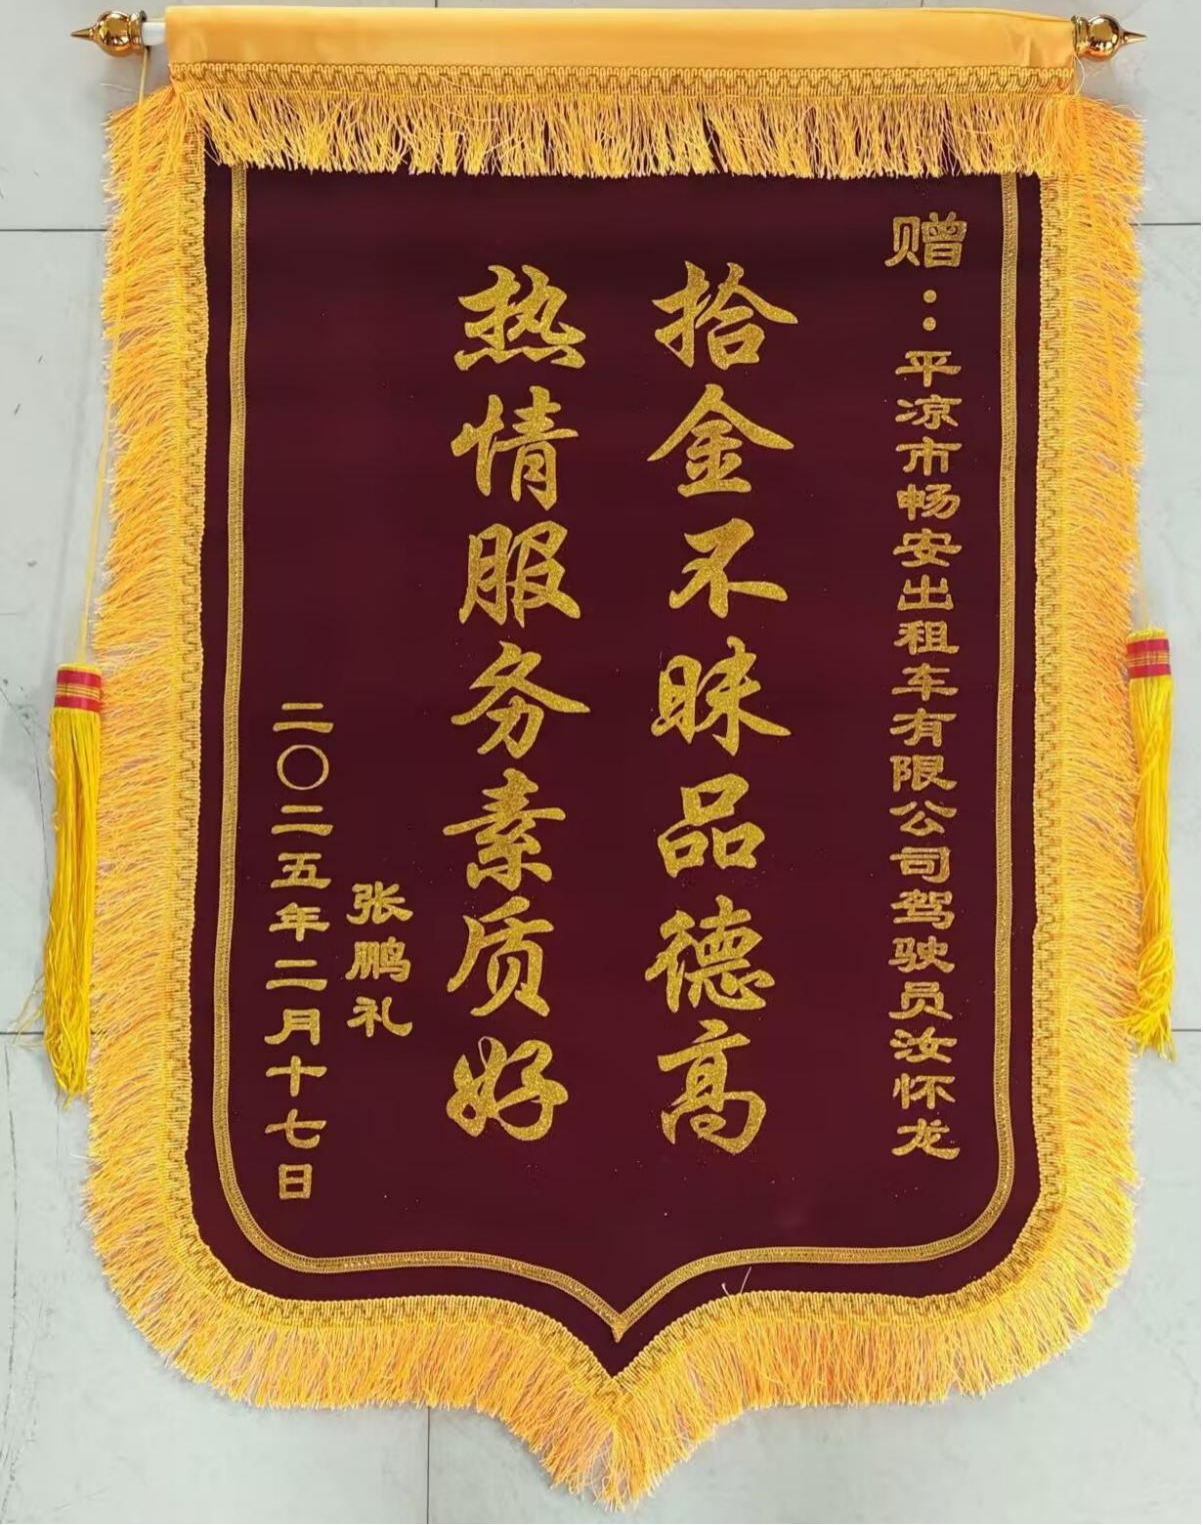 赠：平凉市畅安出租车有限公司驾驶员汝怀龙
拾金不昧品德高
热情服务素质好
张鹏礼
二〇二五年二月十七日